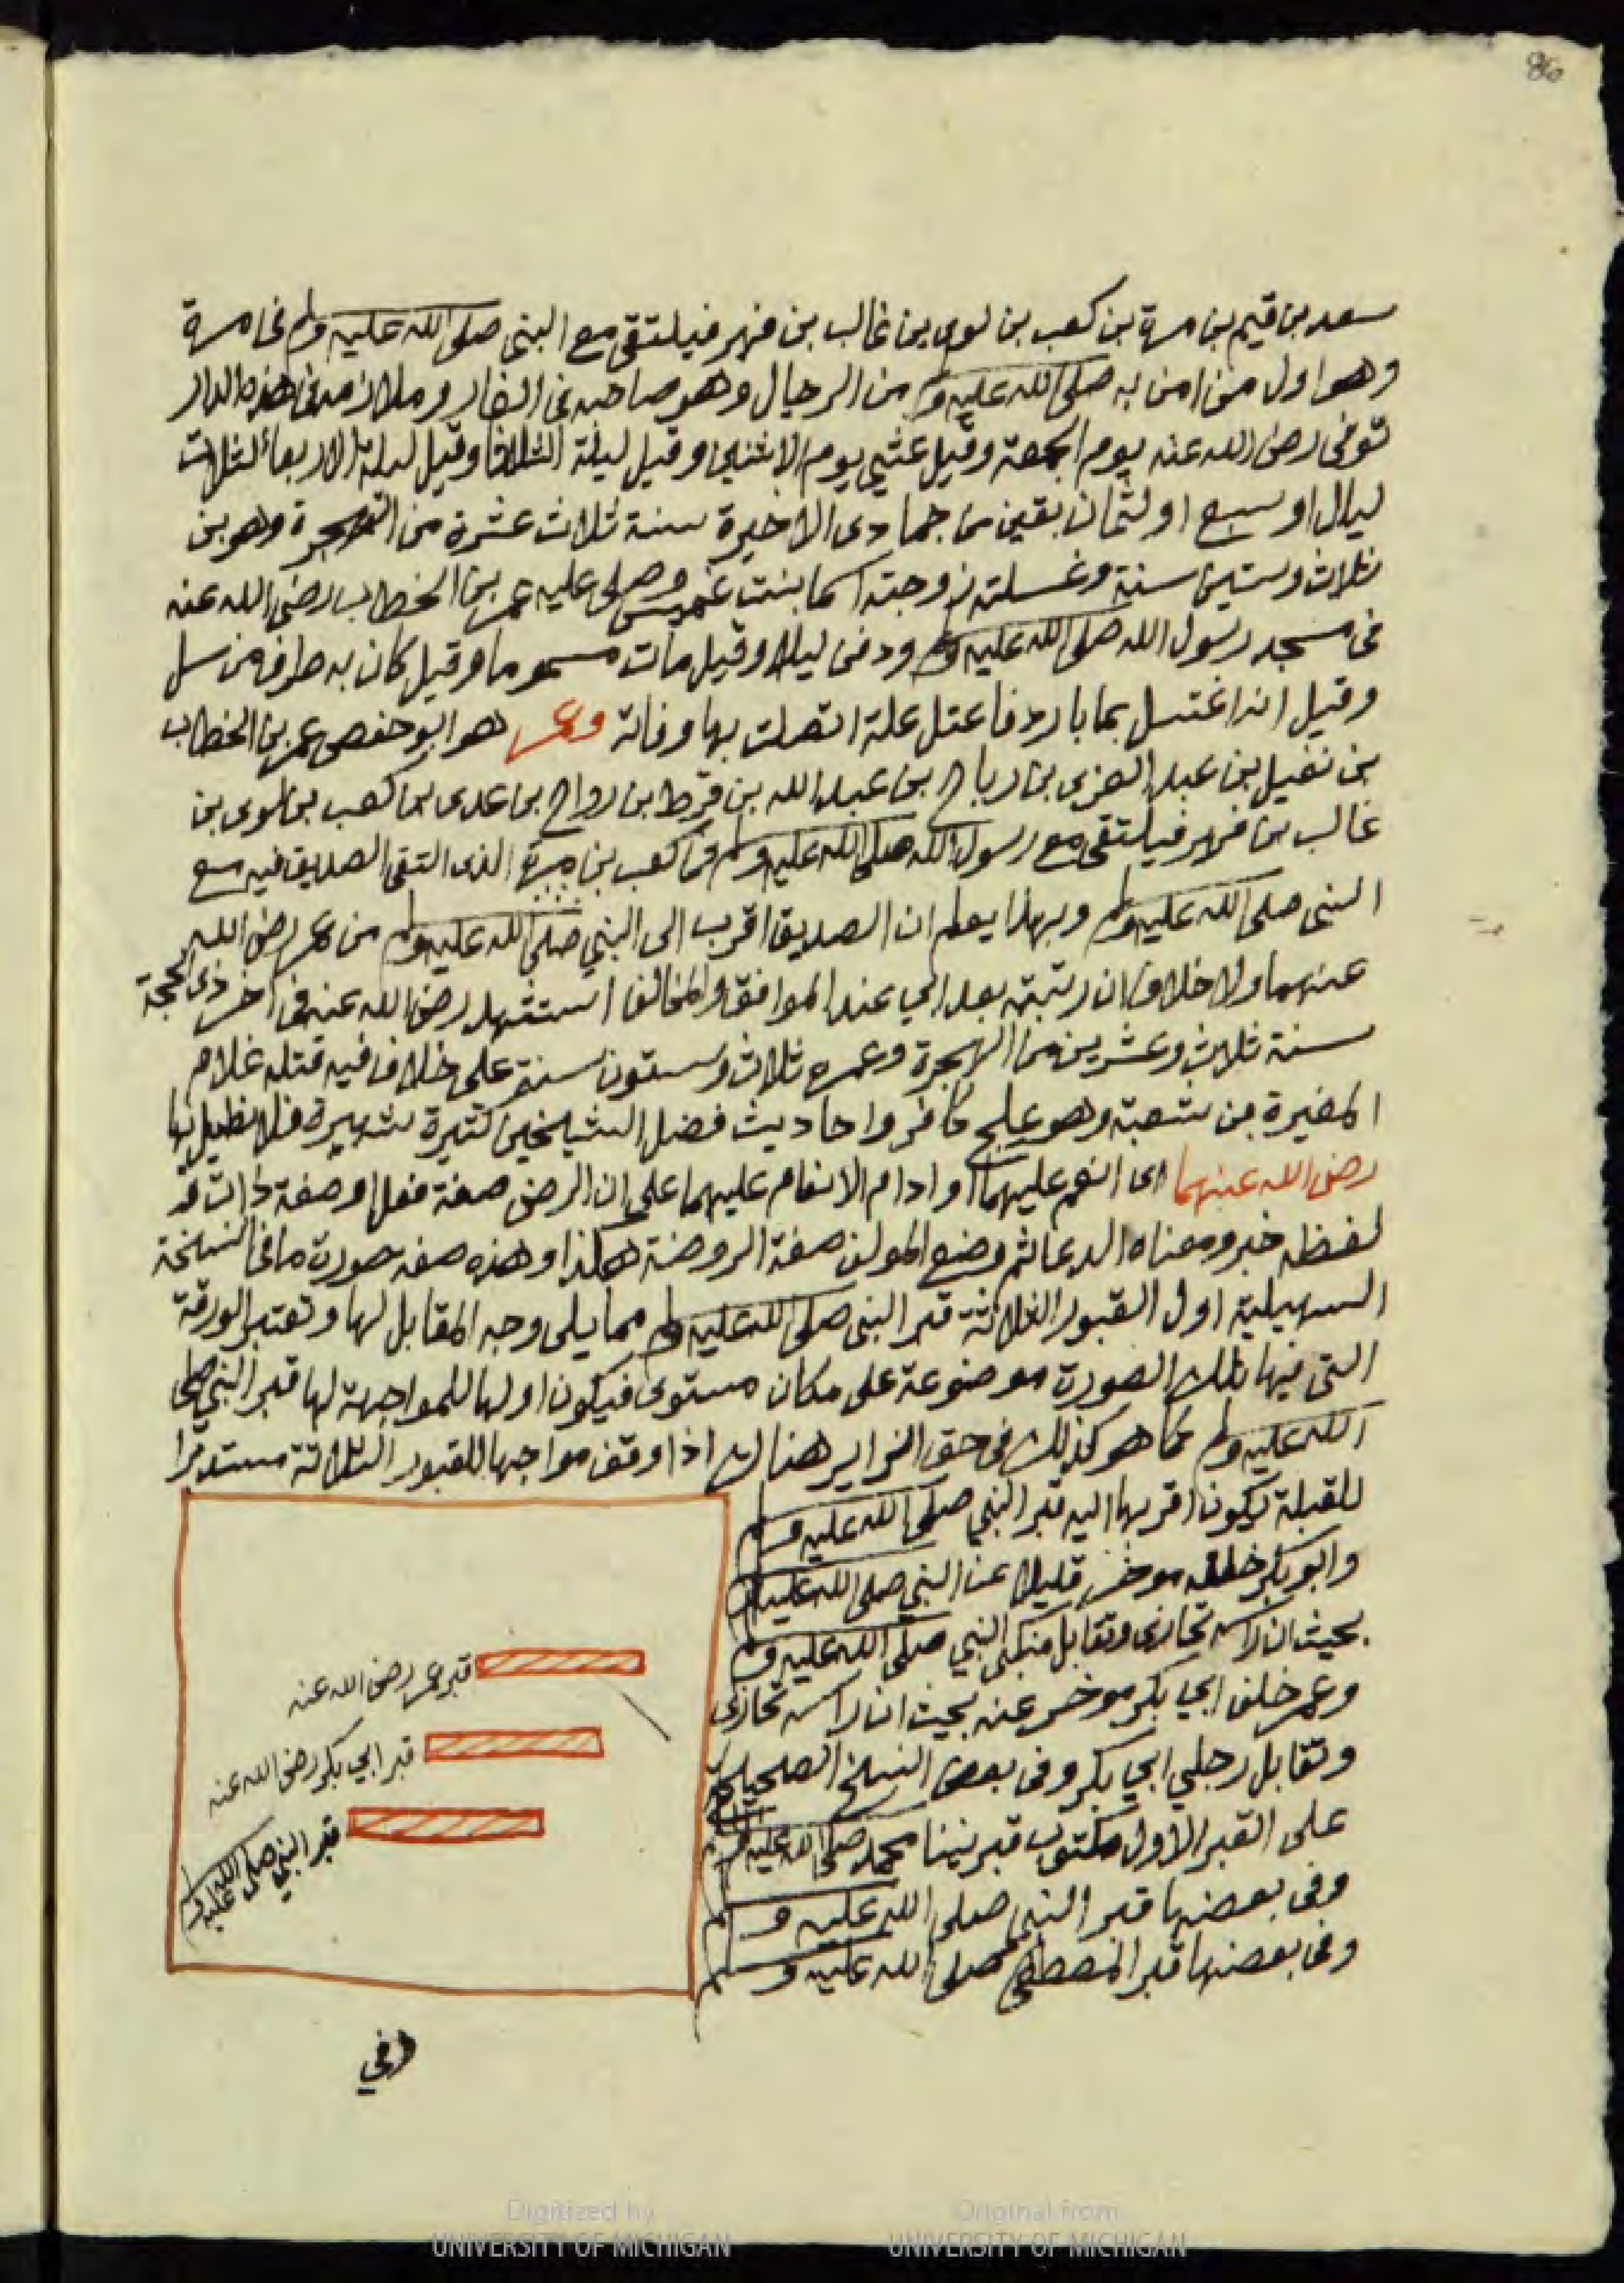 86
سعد بن تيم بن مرة بن كعب بن لوى بن غالب بن فهر فيلتقى مع النبى صلى الله عليه وسلم فى مرة
وهو اول من امن به صلى الله عليه وسلم من الرجال وهو صاحبه فى الغار وملازمه فى هذه الدار
توفى رضى الله عنه يوم الجمعة وقيل عشي يوم الاثنين وقيل ليلة الثلاثا وقيل ليلة الاربعا لثلاث
ليال او سبع او لثمان بقين من جمادى الاخيرة سنة ثلاث عشرة من الهجرة وهو بن
ثلاث وستين سنة وغسلته زوجته اسما بنت عميس وصلى عليه عمر بن الخطاب رضى الله عنه
فى مسجد رسول الله صلى الله عليه وسلم ودفن ليلا وقيل مات مسموما وقيل كان به طرف من سل
وقيل انه اغتسل بما بارد فاعتل علة اتصلت بها وفاته وعمر هو ابو حفص عمر بن الخطاب
بن نفيل بن عبد العزى بن رباح بن عبد الله بن قرط بن رزاح بن عدى بن كعب بن لوى بن
غالب بن فهر فيلتقى مع رسول الله صلى الله عليه وسلم فى كعب بن مرة الذى التقى الصديق فيه مع
النبى صلى الله عليه وسلم وبهذا يعلم ان الصديق اقرب الى النبي صلى الله عليه وسلم من عمر رضى الله
عنهما ولا خلاف ان رتبته بعد ابي عند الموافق والمخالف استشهد رضى الله عنه فى اخر ذى الحجة
سنة ثلاث وعشرين من الهجرة وعمره ثلاث وستون سنة على خلاف فيه قتله غلام
المغيرة بن شعبة وهو علج كافر واحاديث فضل الشيخين كثيرة شهيرة فلا نطيل بها
رضى الله عنهما اى انعم عليهما او ادام الانعام عليهما على ان الرضى صفة فعل او صفة ذات قد
لفظه خبر ومعناه الدعا ثم وضع المولف صفة الروضة هكذا وهذه صفه صورة ما فى النسخة
السهيلية اول القبور الثلاثة قبر النبى صلى الله عليه وسلم مما يلى وجه المقابل لها وتعتبر الورقة
التى فيها تلك الصورة موضوعة على مكان مستوى فيكون اولها للمواجهة لها قبر النبي صلى
الله عليه وسلم كما هو كذلك فى حق الزاير هنالك اذا وقف مواجها للقبور الثلاثة مستدبرا
للقبلة يكون اقربها اليه قبر النبي صلى الله عليه وسلم
وابو بكر خلفه موخر قليلا عن النبي صلى الله عليه وسلم
بحيث ان راسه تحاذى وتقابل منكبى النبي صلى الله عليه وسلم
وعمر خلف ابي بكر موخر عنه بحيث ان راسه تحاذى
وتقابل رجلي ابي بكر وفى بعض النسخ الصحيحة
على القبر الاول مكتوب قبر نبينا محمد صلى الله عليه وسلم
وفى بعضها قبر النبى صلى الله عليه وسلم
وفى بعضها قبر المصطفى صلى الله عليه وسلم
قبر عمر رضى الله عنه
قبر ابي بكر رضى الله عنه
قبر النبي صلى الله عليه وسلم
وفي
Digitized by UNIVERSITY OF MICHIGAN
Original from UNIVERSITY OF MICHIGAN